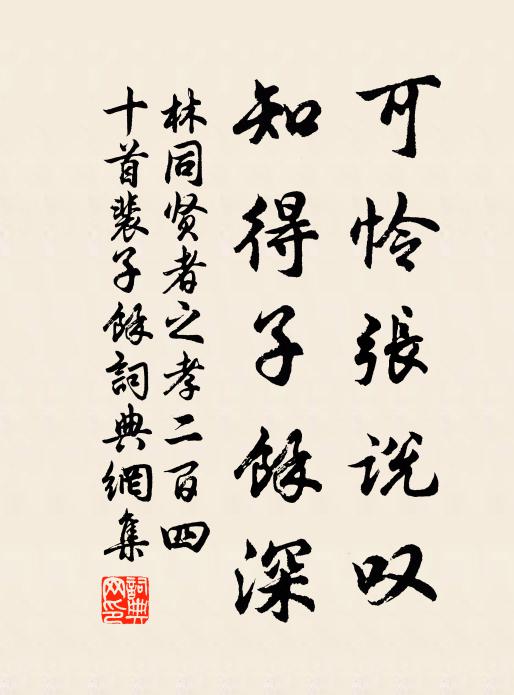 可怜張说叹
知得子餘深
林同贤者之孝二百四
十首裴子餘詞典網集
詞典网印